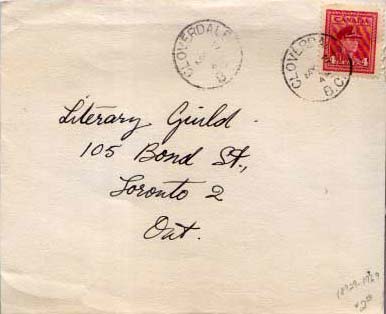 CLOVERDALE
B.C.
CLOVERDALE
B.C.
CANADA
4 4
Literary Guild.
105 Bond St.,
Toronto 2
Ont.